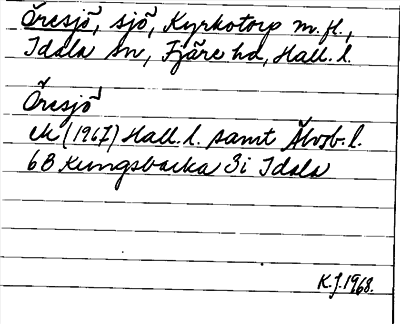 Öresjö, sjö, Kyrkotorp m.fl.,
Idala sn, Fjäre hd, Hall. l.
Öresjö
ek (1967) Hall. l. samt Älvsb. l.
6B Kungsbacka 3i Idala
K.J. 1968.